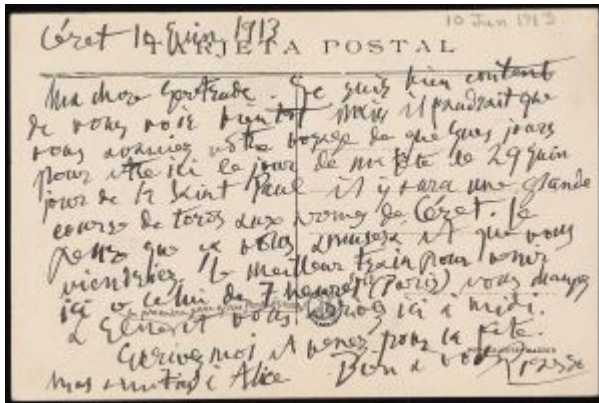 10 Jun 1913.
Céret 10 Juin 1913
TARJETA POSTAL
Ma chere Gertrude. Je suis bien content
de vous voir bientot mais il faudrait que
vous avanciez votre voyage de quelques jours
pour etre ici le jour de ma fete le 29 Juin
jour de la Saint Paul il y aura une grande
course de toros aux arenes de Céret. Je
pense que ca vous amusera et que vous
viendrez. Le meilleur train pour venir
ici celui de 7 heures (Paris) vous changez
a vous ici a midi.
Ecrivez moi et venez pour la fete.
mes amities a Alice Bon a vous
Picasso